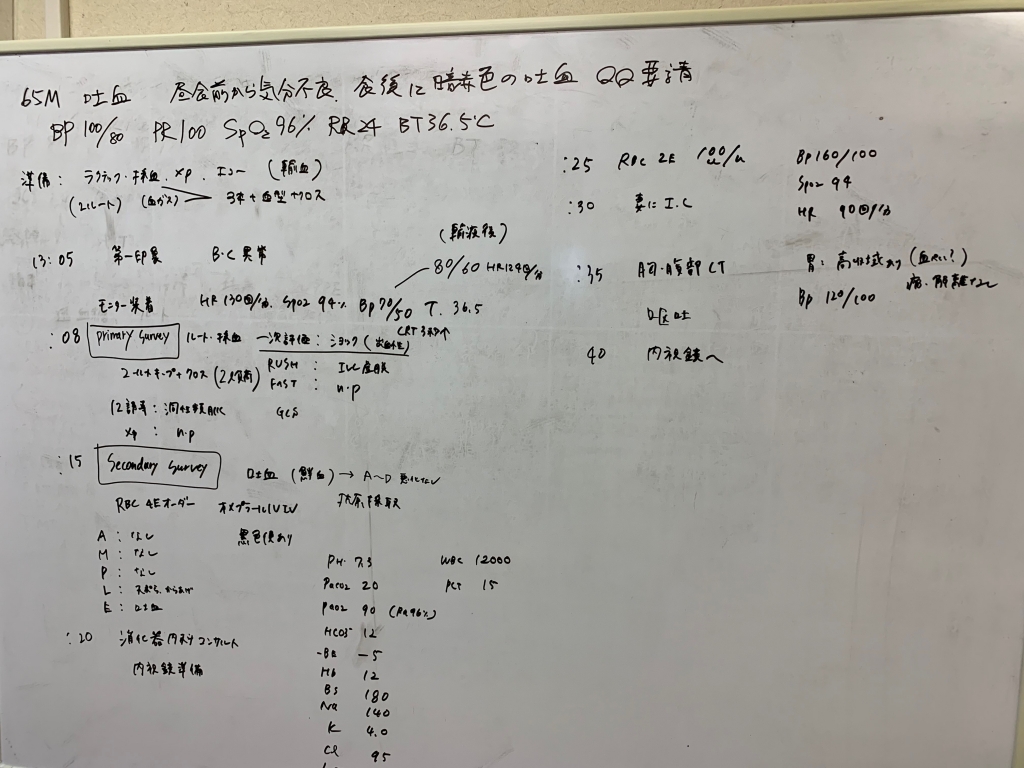 65M 吐血 昼食前から気分不良 食後に暗赤色の吐血 QQ要請
BP 100/80 PR 100 SpO2 96% RR 24 BT 36.5℃
準備: ラクテック・採血. Xp. エコー (輸血)
(2ルート) (血ガス) 3本+血型+クロス
13:05 第一印象 B・C異常
(輸液後)
80/60 HR124回/分
モニター装着 HR 130回/分. SpO2 94% Bp 70/50 T. 36.5
CRT 3秒↑
:08 Primary Survey ルート・採血 一次評価: ショック (出血性)
クロス
RUSH : IVC虚脱
FAST : n.p
12誘導: 洞性頻脈 GCS
Xp : n.p
:15 Secondary Survey 吐血 (鮮血) → A~D 悪化なし
RBC 4Eオーダー オメプラール1V IV
A : なし 黒色便あり
M : なし
P : なし
L : 天ぷら. からあげ
E : 吐血
:20 消化器内科コンサルト
内視鏡準備
PH 7.3
PaCO2 20
PaO2 90 (RA96%)
HCO3- 12
-BE -5
Hb 12
BS 180
Na 140
K 4.0
Cl 95
WBC 12000
PLT 15
:25 RBC 2E
:30 妻に I.C
:35 胸・腹部 CT
嘔吐
40 内視鏡へ
Bp 160/100
SpO2 94
HR 90回/分
胃: 高吸収域あり
Bp 120/100